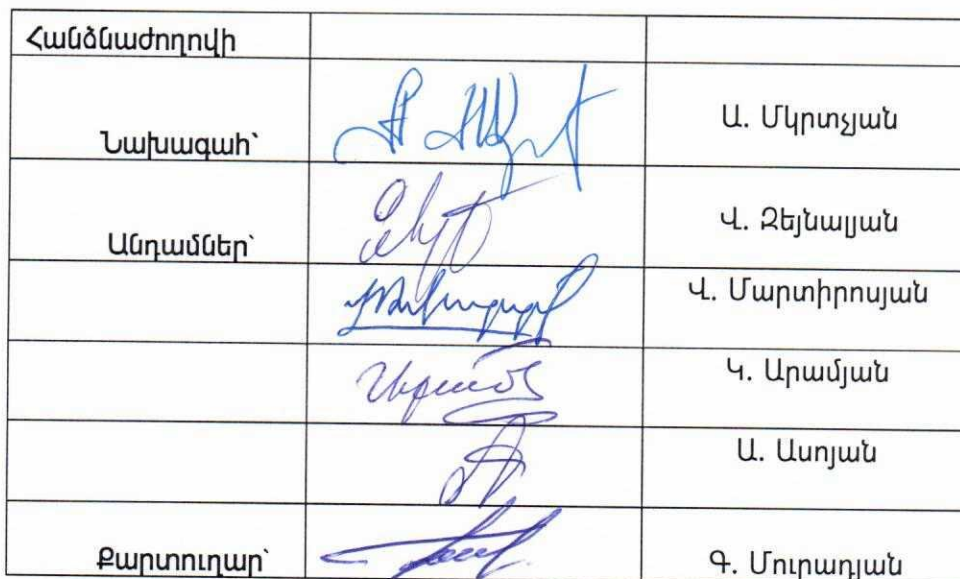 Հանձնաժողովի
Նախագահ՝ Ա. Մկրտչյան
Անդամներ՝ Վ. Զեյնալյան
Վ. Մարտիրոսյան
Կ. Արամյան
Ա. Ասոյան
Քարտուղար՝ Գ. Մուրադյան